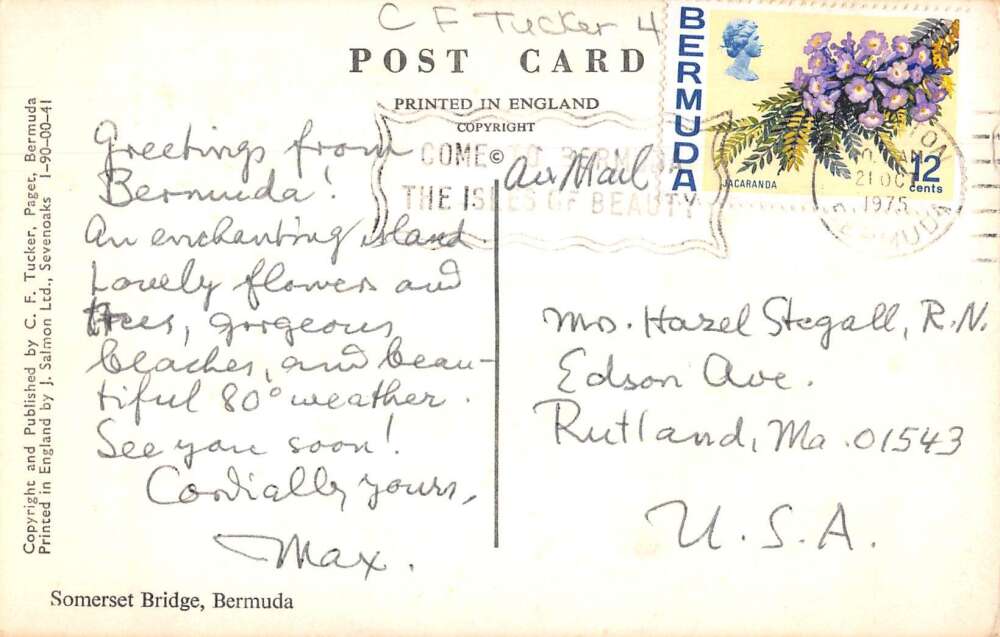 C F Tucker 4
POST CARD
PRINTED IN ENGLAND
COPYRIGHT
©
Air Mail
COME TO BERMUDA
THE ISLES OF BEAUTY
BERMUDA
JACARANDA
12
cents
AM
21 OC
1975
BERMUDA
Greetings from
Bermuda!
An enchanting island.
Lovely flowers and
trees, gorgeous
beaches, and beau-
tiful 80° weather.
See you soon!
Cordially yours,
Max.
Mrs. Hazel Stegall, R.N.
Edson Ave.
Rutland, Ma. 01543
U.S.A.
Copyright and Published by C. F. Tucker, Paget, Bermuda
Printed in England by J. Salmon Ltd., Sevenoaks 1-90-00-41
Somerset Bridge, Bermuda